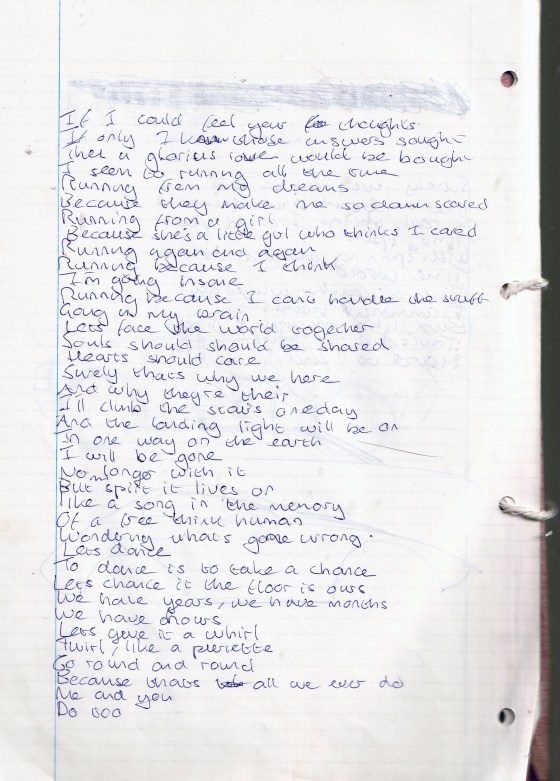 If I could feel your thoughts
If only I knew whose answers sought
Then a glorious love would be bought
I seem to running all the time
Running from my dreams
Because they make me so damn scared
Running from a girl
Because she's a little girl who thinks I cared
Running again and again
Running because I think
I'm going insane
Running because I cant handle the stuff
Going in my brain
Lets face the world together
Souls should should be shared
Hearts should care
Surely thats why we here
And why they're their
I'll climb the stairs oneday
And the landing light will be on
In one way on the earth
I will be gone
No longer with it
But my spirit it lives on
like a song in the memory
Of a free think human
Wondering whats gone wrong.
Lets dance
To dance is to take a chance
Lets chance it the floor is ours
We have years, we have months
We have hours
Lets give it a whirl
Twirl, like a
Go round and round
Because thats all we ever do
Me and you
Do too